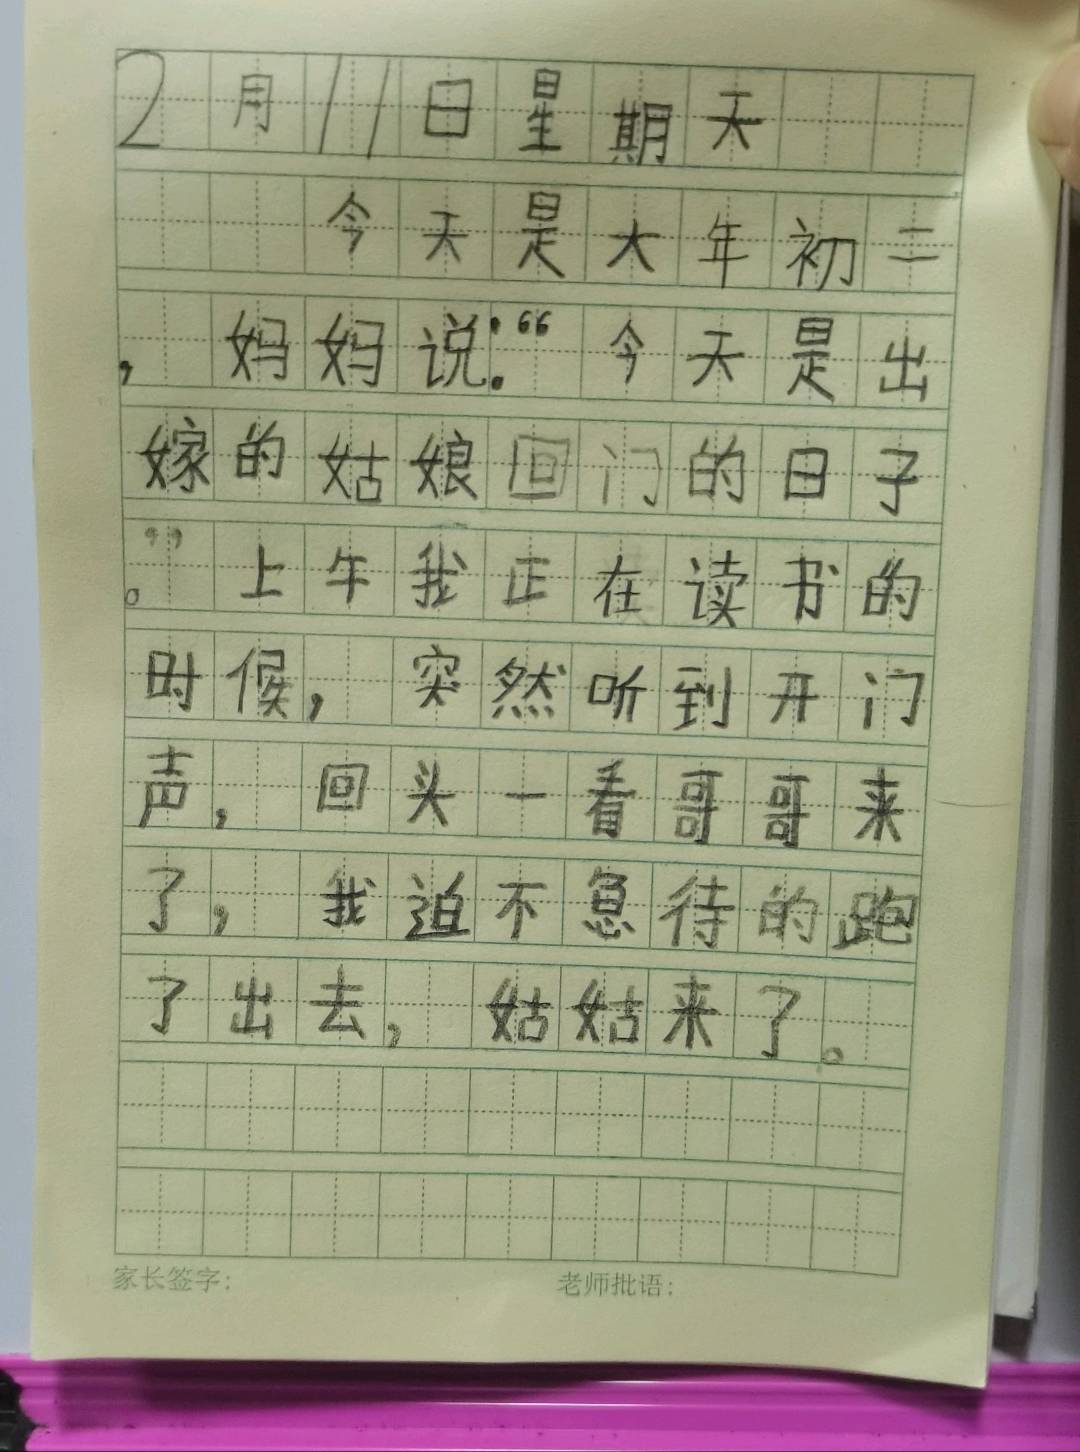 2月11日星期天
今天是大年初二
，妈妈说：“今天是出
嫁的姑娘回门的日子
。”上午我正在读书的
时候，突然听到开门
声，回头一看哥哥来
了，我迫不急待的跑
了出去，姑姑来了。
家长签字： 老师批语：